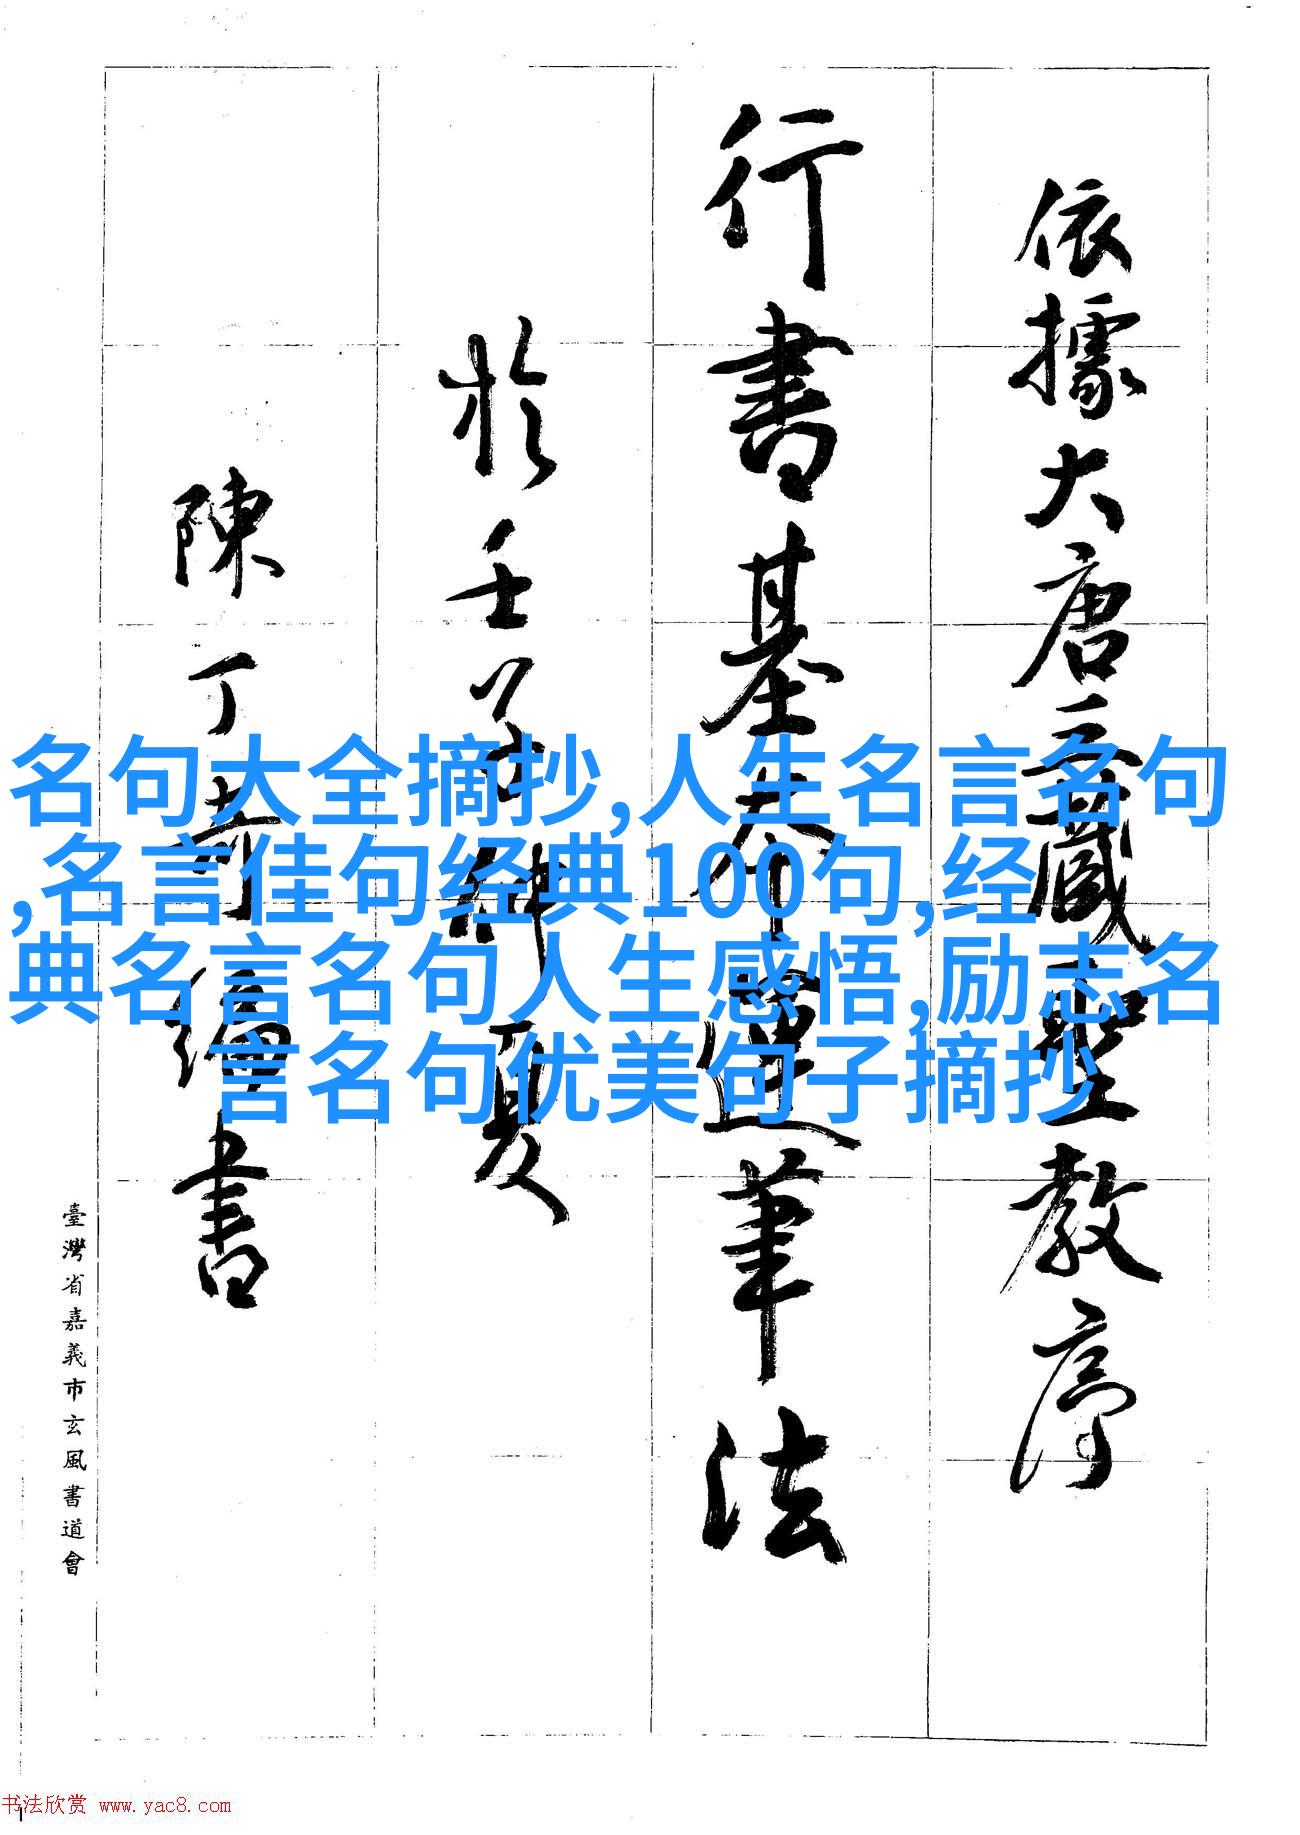 依據大唐三藏聖教序
行書基本運筆法
於壬子仲夏
陳丁奇編書
臺灣省嘉義市玄風書道會
名句大全摘抄,人生名言名句
,名言佳句经典100句,经
典名言名句人生感悟,励志名
言名句优美句子摘抄
书法欣赏 www.yac8.com
1